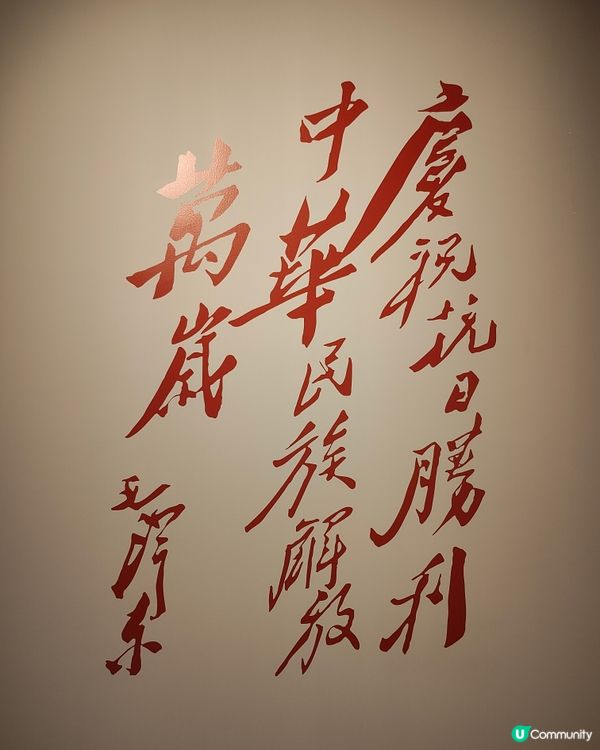 慶祝抗日勝利
中華民族解放
萬歲
毛澤东
U Community